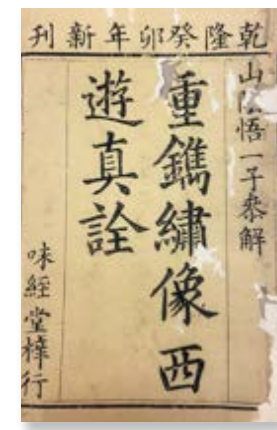 乾隆癸卯年新刊
山陰悟一子參解
重鐫繡像西
遊真詮
味經堂梓行